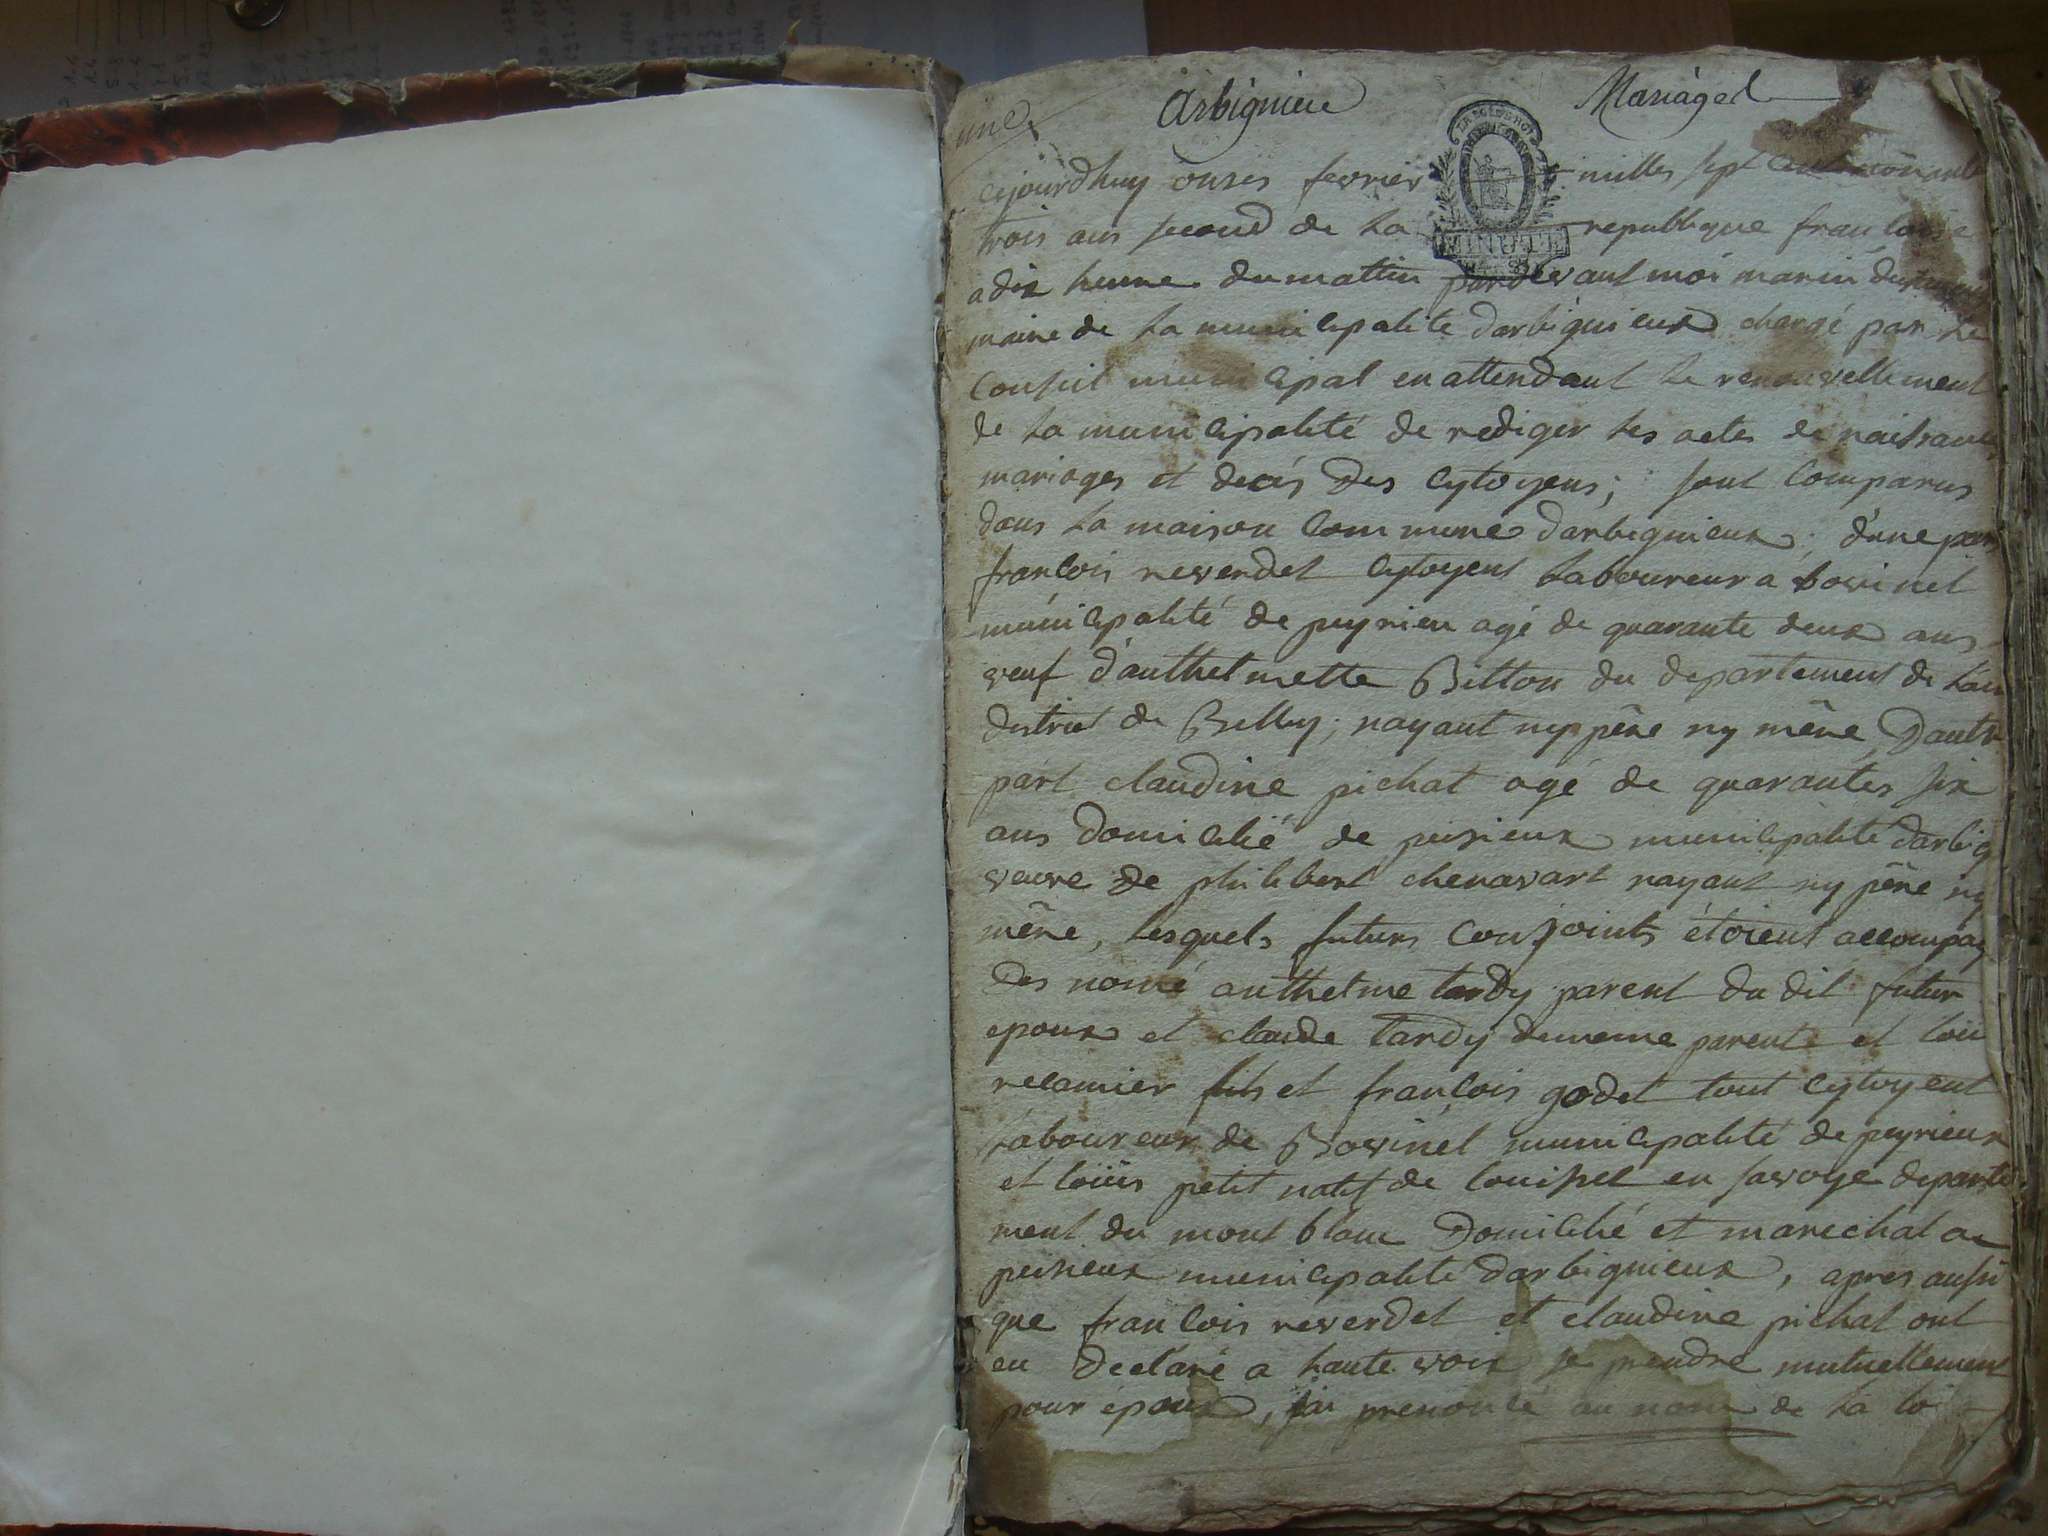 une
Arbignieu Mariages
Cejourdhuy onses fevrier milles sept cent
trois ans second de La republique francoise
a dix heure du mattin par devant moi marin
maire de La municipalite darbignieux chargé par Le
Conseil municipal en attendant Le renouvellement
de La municipalité de rediger Les actes de naissances
mariages et decés des Cytoyens; sont Comparus
dans La maison Commune darbignieux; d'une part
francois reverdet Cytoyent Laboureur a bovinel
municipalité de peyrieu agé de quarante deux ans
veuf d'anthelmette Billon du departement de Lain
district de Belley; nayant ny père ny mère, Dautre
part claudine pichat agé de quarantes six
ans domicilié de peisieux municipalité darbig
veuve de philibert chenavart nayant ny père ny
mère, Lesquels futurs Conjoints étoient accompag
des nomé anthelme tardy parent du dit futur
epoux et claude tardy de meme parent et loüi
recamier fils et francois godet tout Cytoyent
Laboureur de Bovinel municipalité de peyrieux
et loüis petit natif de en savoye departe
ment du mont blanc Domicilié et marechal a
peisieux municipalité darbignieux, apres aussi
que francois reverdet et claudine pichat ont
eu declaré a haute voix se prendre mutuellement
pour époux, jai prenoncé au nom de La loi
LA LOI LE ROI
MINUTE